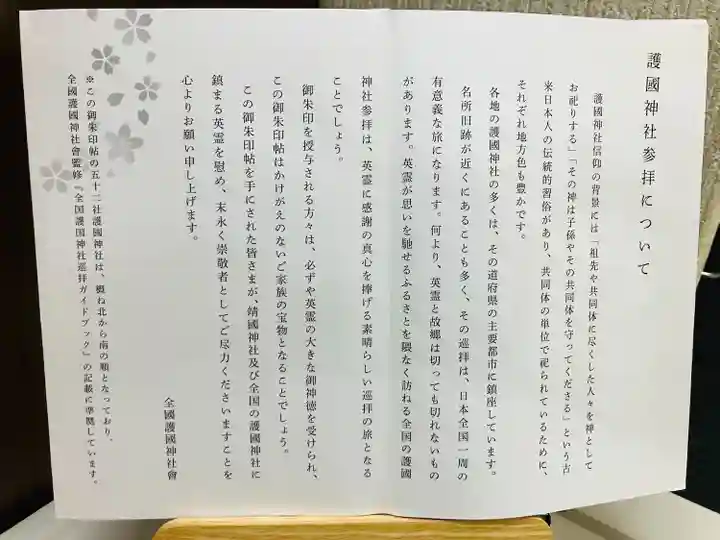 護國神社参拝について
護國神社信仰の背景には「祖先や共同体に尽くした人々を神として
お祀りする」「その神は子孫やその共同体を守ってくださる」という古
来日本人の伝統的習俗があり、共同体の単位で祀られているために、
それぞれ地方色も豊かです。
各地の護國神社の多くは、その道府県の主要都市に鎮座しています。
名所旧跡が近くにあることも多く、その巡拝は、日本全国一周の
有意義な旅になります。何より、英霊と故郷は切っても切れないもの
があります。英霊が思いを馳せるふるさとを隈なく訪ねる全国の護國
神社参拝は、英霊に感謝の真心を捧げる素晴らしい巡拝の旅となる
ことでしょう。
御朱印を授与される方々は、必ずや英霊の大きな御神徳を受けられ、
この御朱印帖はかけがえのないご家族の宝物となることでしょう。
この御朱印帖を手にされた皆さまが、靖國神社及び全国の護國神社に
鎮まる英霊を慰め、末永く崇敬者としてご尽力くださいますことを
心よりお願い申し上げます。
全國護國神社會
※この御朱印帖の五十二社護國神社は、概ね北から南の順となっており、
全國護國神社會監修『全国護国神社巡拝ガイドブック』の記載に準拠しています。